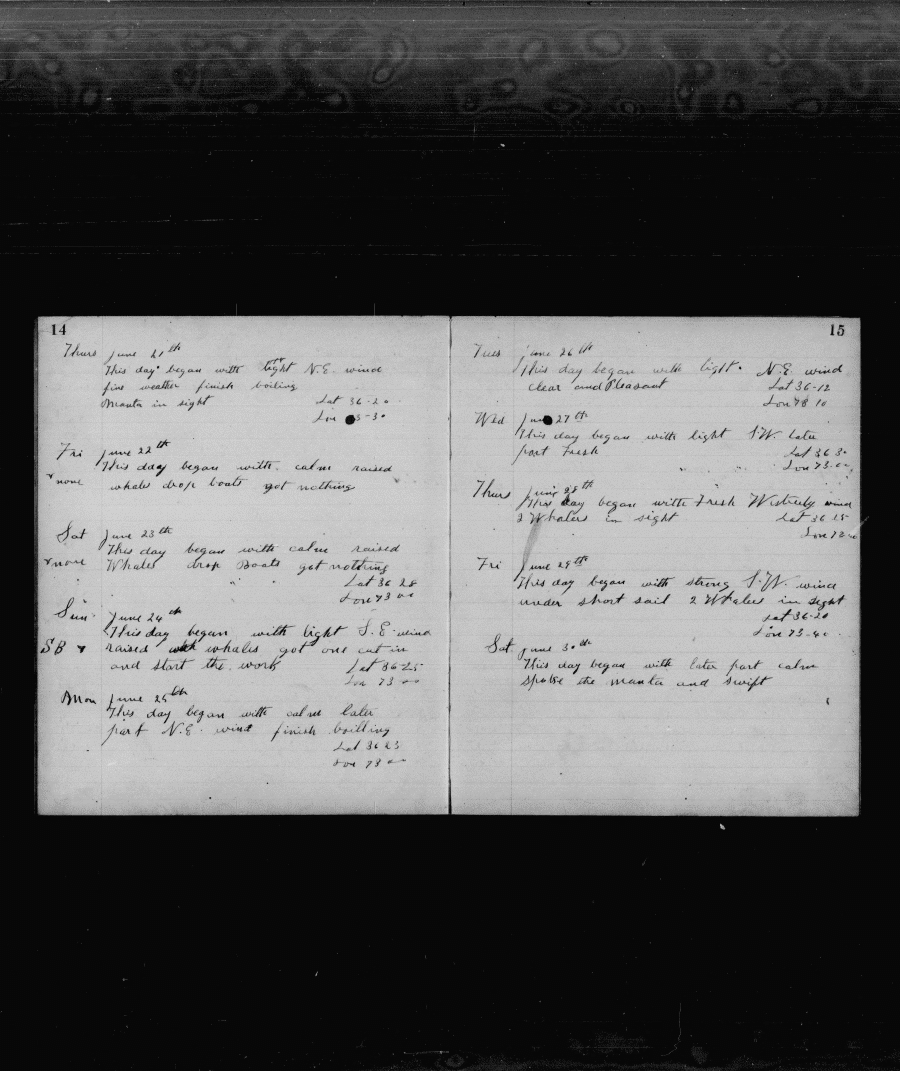 14
Thurs June 21th
This day began with light N.E. wind
fine weather finish boiling
Manta in sight Lat 36-20
Lon 3-30
Fri June 22th
This day began with calm raised
none whale drop boats got nothing
Sat June 23th
This day began with calm raised
none Whales drop Boats got nothing
Lat 36 28
Lon 73 00
Sun June 24th
This day began with light S.E. wind
SB raised whales got one cut in
and start the work Lat 36-25
Lon 73 00
Mon June 25th
This day began with calm later
part N.E. wind finish boilling
Lat 36 23
Lon 73 00
15
Tues June 26th
This day began with light N.E. wind
clear and Pleasant Lat 36-12
Lon 73 10
Wed June 27th
This day began with light S.W. later
part Fresh Lat 36 30
Lon 73.00
Thurs June 28th
This day began with Fresh Westerly wind
2 Whalers in sight Lat 36 25
Lon 73
Fri June 29th
This day began with strong S.W. wind
under short sail 2 Whalers in sight
Lat 36-20
Lon 73-40
Sat June 30th
This day began with later part calm
Spoke the Manta and Swift